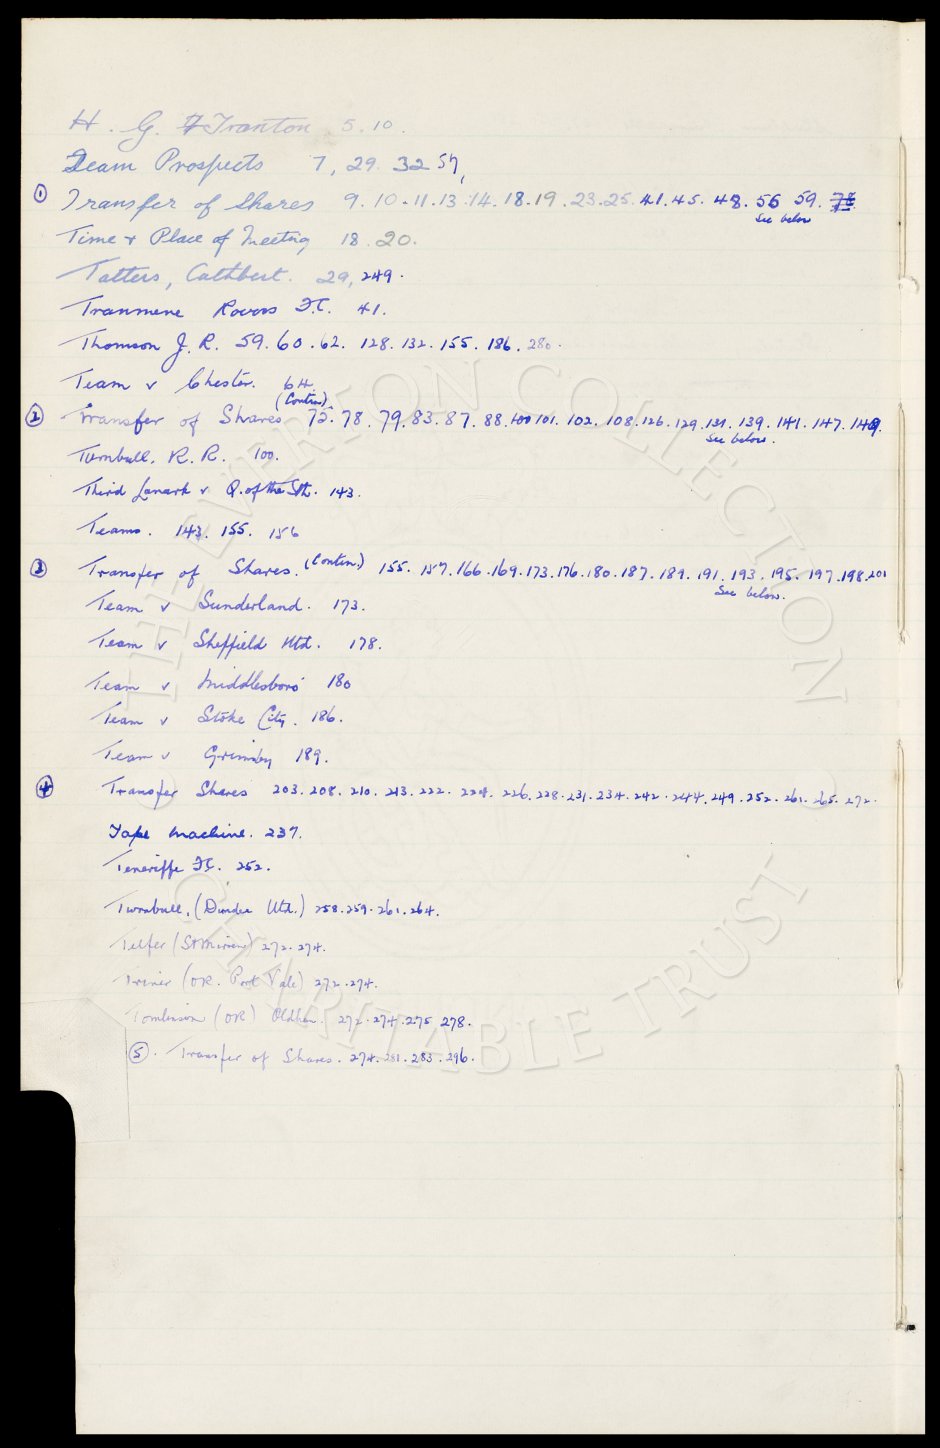 H. G. Tranton 5. 10.
Team Prospects 7, 29. 32 57,
① Transfer of Shares 9. 10. 11. 13. 14. 18. 19. 23. 25. 41. 45. 48. 56 59.
See below
Time & Place of Meeting 18. 20.
Tatters, Cuthbert. 29, 249.
Tranmere Rovers F.C. 41.
Thomson J. R. 59. 60. 62. 128. 132. 155. 186. 280.
Team v Chester. 64.
(Contin)
② Transfer of Shares 75. 78. 79. 83. 87. 88. 100 101. 102. 108. 126. 129. 131. 139. 141. 147. 149.
See below.
Turnbull. R. R. 100.
Third Lanark v Q. of the Sth. 143.
Teams. 143. 155. 156
③ Transfer of Shares. (Contin.) 155. 157. 166. 169. 173. 176. 180. 187. 189. 191. 193. 195. 197. 198. 201
See below.
Team v Sunderland. 173.
Team v Sheffield Utd. 178.
Team v Middlesboro' 180
Team v Stoke City. 186.
Team v Grimsby 189.
④ Transfer Shares 203. 208. 210. 213. 222. 224. 226. 228. 231. 234. 242. 244. 249. 252. 261. 265. 272.
Tape Machine. 237.
Teneriffe F.C. 252.
Turnbull. (Dundee Utd.) 258. 259. 261. 264.
Telfer (St Mirren) 272. 274.
Triner (OR. Port Vale) 272. 274.
Tomlinson (OR) Oldham. 272. 274. 275. 278.
⑤. Transfer of Shares. 274. 281. 283. 296.
THE EVERTON COLLECTION
CHARITABLE TRUST